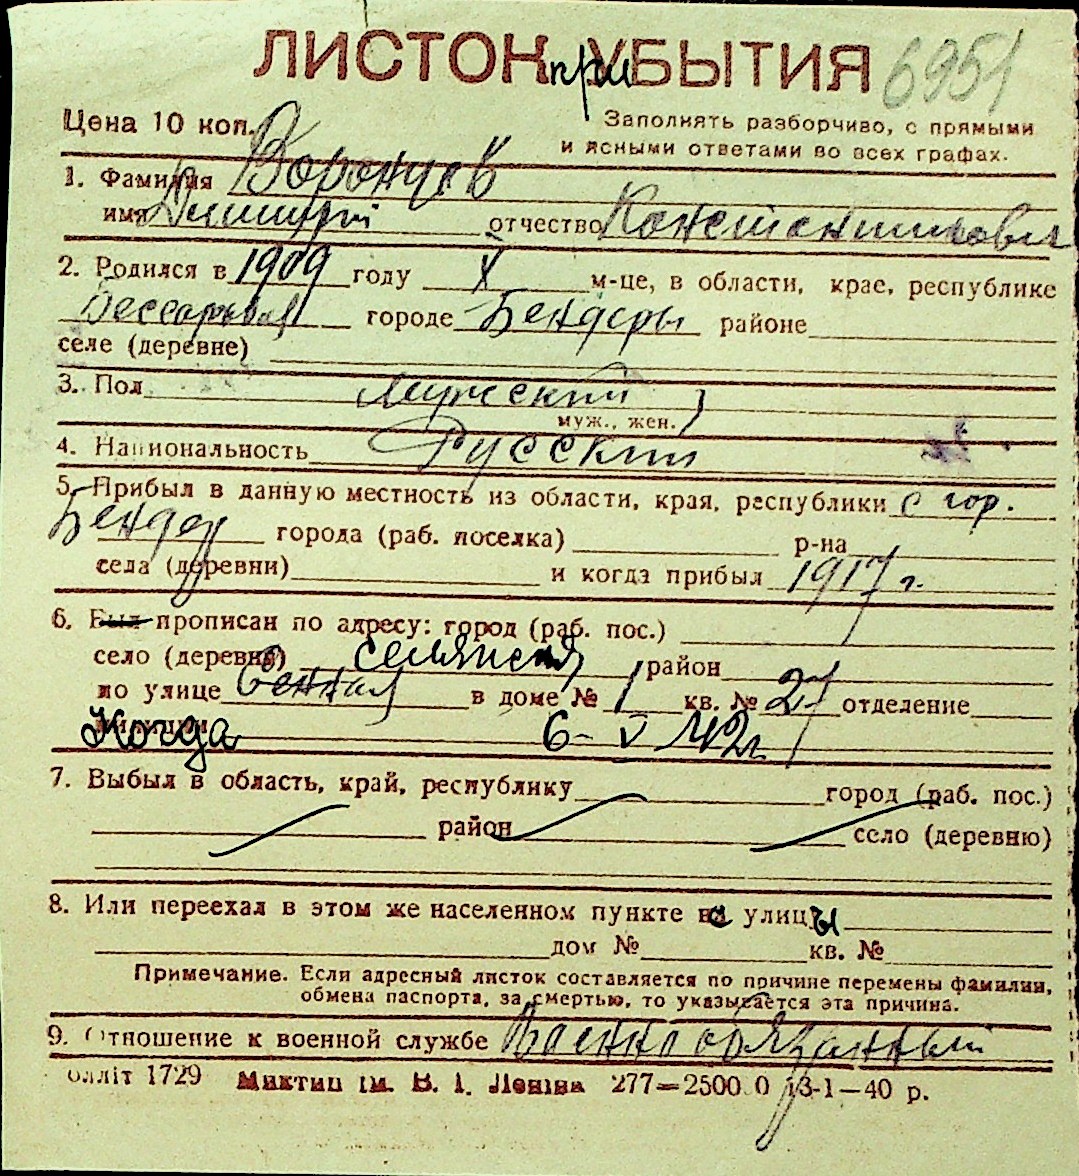 ЛИСТОК при УБЫТИЯ 6951
Цена 10 коп.
Заполнять разборчиво, с прямыми
и ясными ответами во всех графах.
1. Фамилия Воронцов
имя Димитрий отчество Константинович
2. Родился в 1909 году X м-це, в области, крае, республике
Бессарабия городе Бендеры районе
селе (деревне)
3. Пол мужский
муж., жен.
4. Национальность Русский
5. Прибыл в данную местность из области, края, республики с гор.
Бендер города (раб. поселка) р-на
села (деревни) и когда прибыл 1917 г.
6. Был прописан по адресу: город (раб. пос.)
село (деревня) район
по улице Сенная в доме № 1 кв. № 27 отделение
Когда 6-V 42г
7. Выбыл в область, край, республику город (раб. пос.)
район село (деревню)
8. Или переехал в этом же населенном пункте с улицы
дом № кв. №
Примечание. Если адресный листок составляется по причине перемены фамилии,
обмена паспорта, за смертью, то указывается эта причина.
9. Отношение к военной службе Военнообязанный
олліт 1729 Миктип ім. В. І. Леніна 277—2500 0 13-1—40 р.